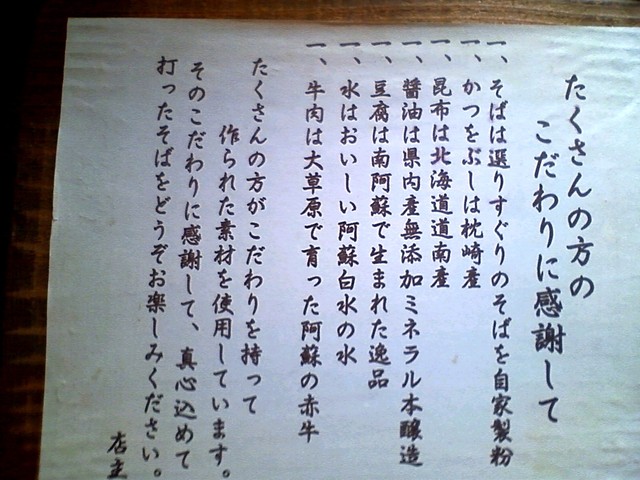 たくさんの方の
こだわりに感謝して
一、そばは選りすぐりのそばを自家製粉
一、かつをぶしは枕崎産
一、昆布は北海道道南産
一、醤油は県内産無添加ミネラル本醸造
一、豆腐は南阿蘇で生まれた逸品
一、水はおいしい阿蘇白水の水
一、牛肉は大草原で育った阿蘇の赤牛
たくさんの方がこだわりを持って
作られた素材を使用しています。
そのこだわりに感謝して、真心込めて
打ったそばをどうぞお楽しみください。
店主